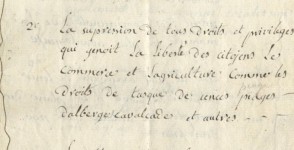 2° La supression de tous Droits et privileges
qui genoit la liberté des citojens le
Commerce et l'agriculture Comme les
Droits de tasque de cences péages
d'alberge cavalcade et autres